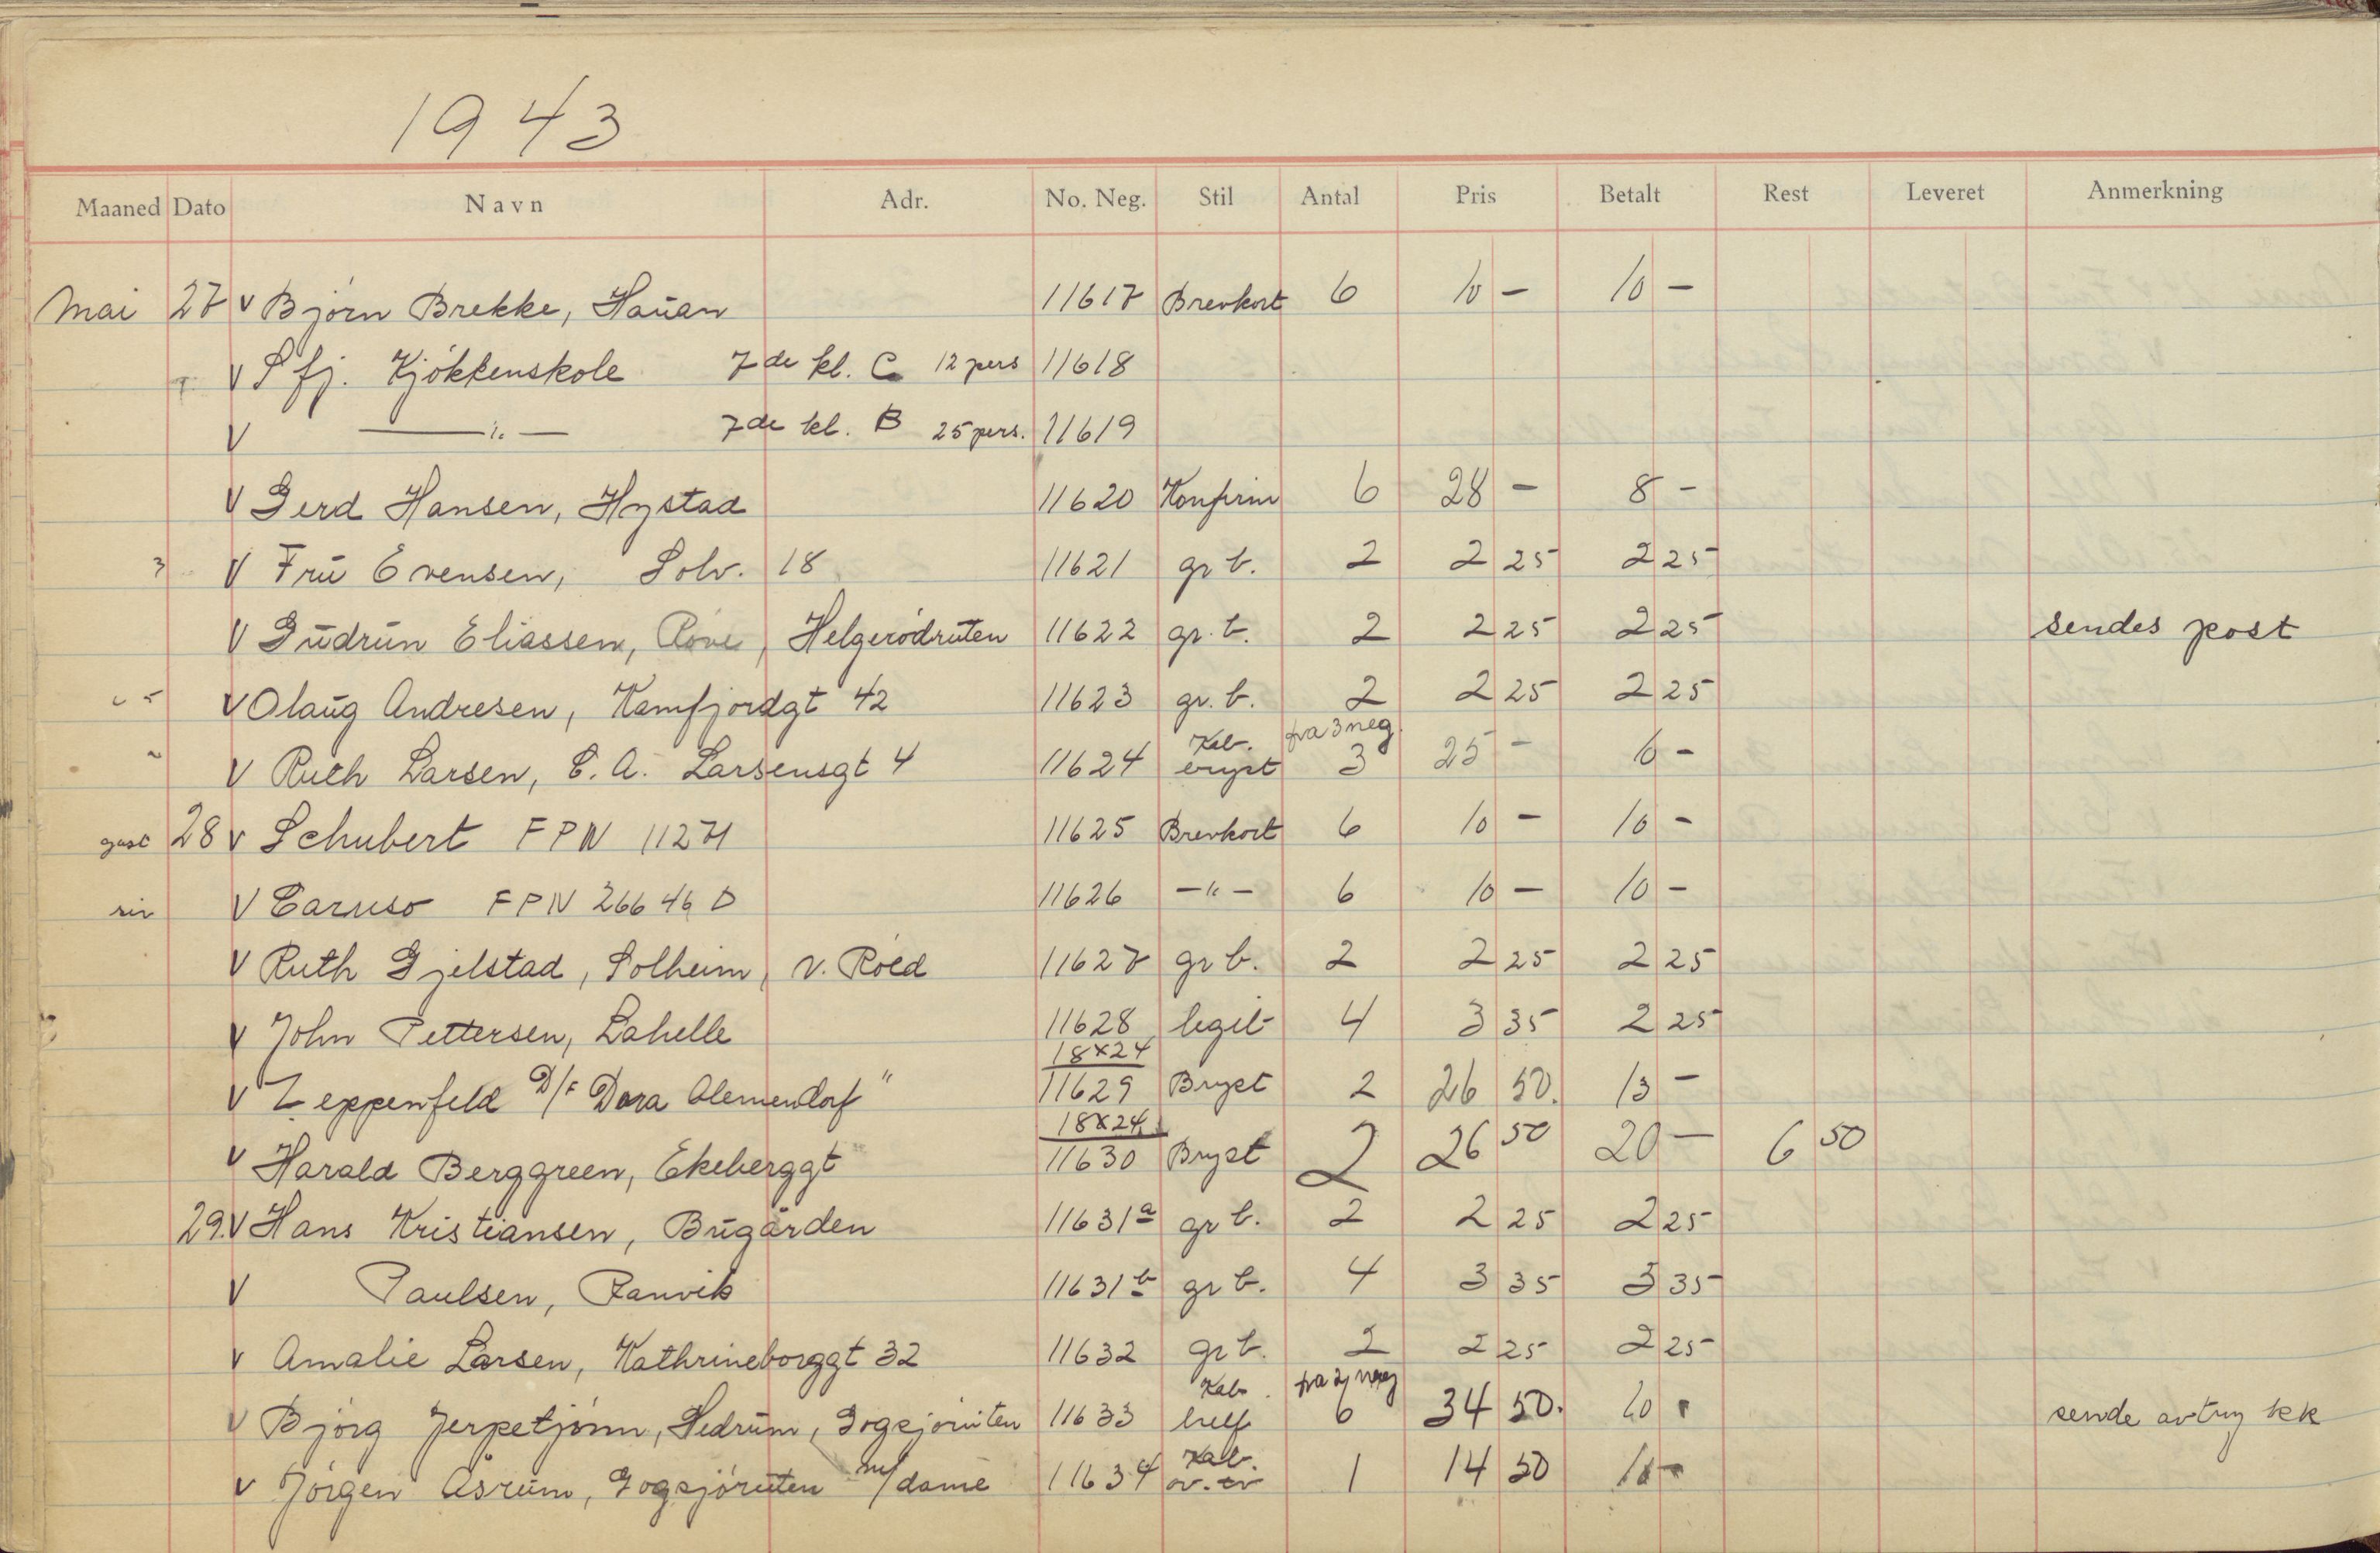 1943
Maaned Dato Navn Adr. No. Neg. Stil Antal Pris Betalt Rest Leveret Anmerkning
Mai 27 V Bjørn Brekke, Hauan 11617 Brevkort 6 10 - 10 -
V S fj. Kjökkenskole 7de kl. C 12 pers 11618
V —"— 7de kl. B 25 pers. 11619
V Gerd Hansen, Hystad 11620 Konfirm 6 28 - 8 -
V Frü Evensen, Solv. 18 11621 gr b. 2 2 25 2 25
V Güdrün Eliassen, Röve, Helgerödrüten 11622 gr. b. 2 2 25 2 25 sendes post
V Olaüg Andresen, Kamfjordgt 42 11623 gr. b. 2 2 25 2 25
Kab. fra 3 neg.
V Ruth Larsen, C. A. Larsensgt 4 11624 bryst 3 25 - 10 -
28 V Schubert FPN 11271 11625 Brevkort 6 10 - 10 -
V Caruso FPN 26646 D 11626 -"- 6 10 - 10 -
V Ruth Gjelstad, Solheim, v. Röed 11627 gr b. 2 2 25 2 25
V John Pettersen, Lahelle 11628 legit 4 3 35 2 25
18x24
V Zeppenfeld D/F Dora Olemendorf" 11629 Bryst 2 26 50. 13 -
18x24
V Harald Berggreen, Ekeberggt 11630 Bryst 2 26 50 20 — 6 50
29. V Hans Kristiansen, Bügården 11631a gr b. 2 2 25 2 25
V Paulsen, Ranvik 11631b gr b. 4 3 35 3 35
V Amalie Larsen, Kathrineborggt 32 11632 gr b. 2 2 25 2 25
Kab. fra 2 neg
V Bjørg Jerpetjønn, Hedrüm, 11633 helf 6 34 50. 10 sende avtryk
Kab.
V Jörgen Åsrüm, Gogsjörüten m/dame 11634 1 14 50 10 -